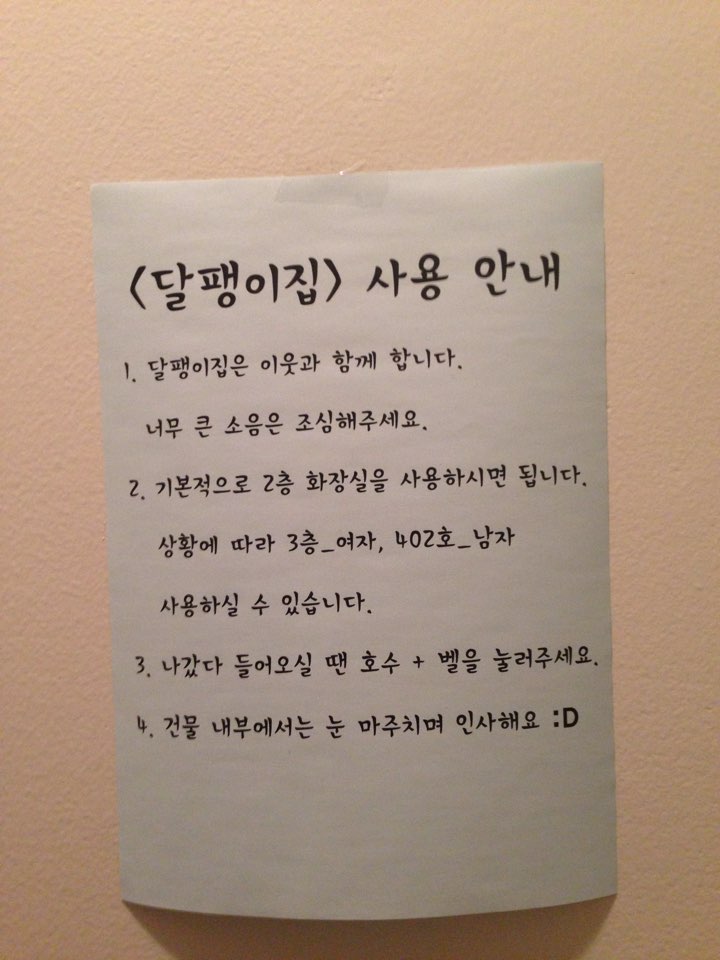 <달팽이집> 사용 안내
1. 달팽이집은 이웃과 함께 합니다.
너무 큰 소음은 조심해주세요.
2. 기본적으로 2층 화장실을 사용하시면 됩니다.
상황에 따라 3층_여자, 402호_남자
사용하실 수 있습니다.
3. 나갔다 들어오실 땐 호수 + 벨을 눌러주세요.
4. 건물 내부에서는 눈 마주치며 인사해요 :D